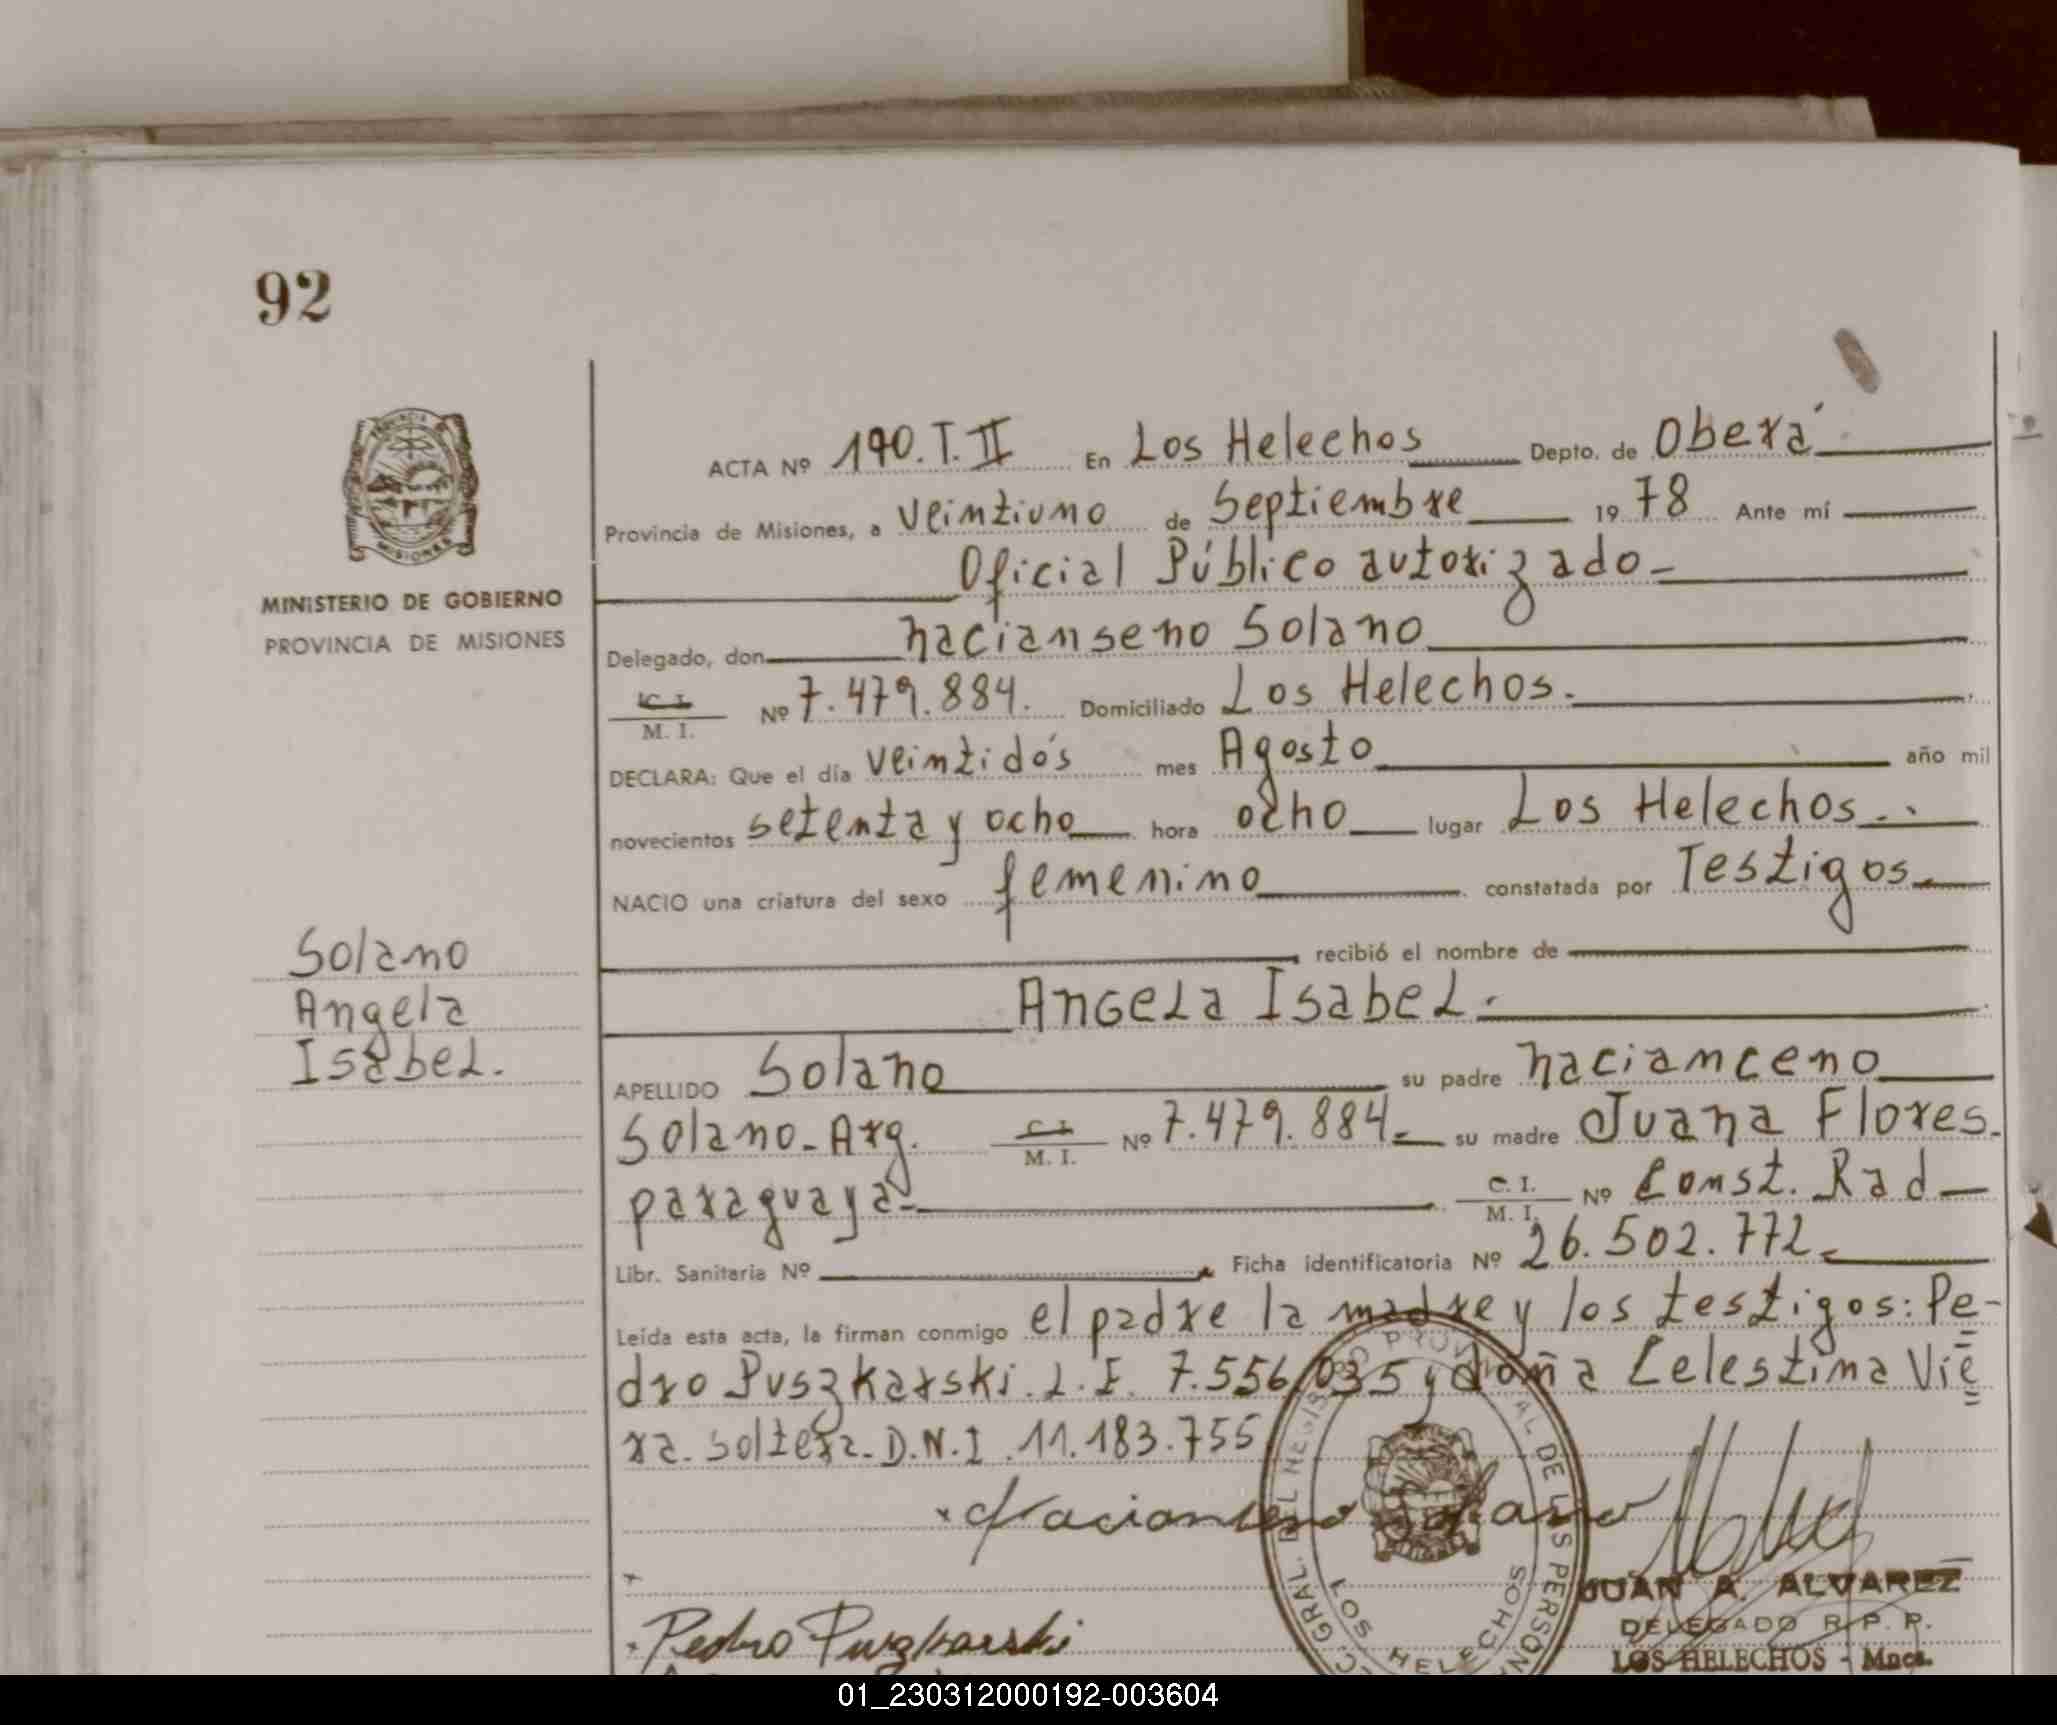 92
PROVINCIA
MISIONES
MINISTERIO DE GOBIERNO
PROVINCIA DE MISIONES
Solano
Angela
Isabel.
ACTA Nº 190.T.II En Los Helechos Depto. de Oberá
Provincia de Misiones, a veintiuno de Septiembre 1978 Ante mí
Oficial Público autorizado-
Delegado, don nacianseno Solano
C. I.
M. I. Nº 7.479.884. Domiciliado Los Helechos.
DECLARA: Que el día veintidós mes Agosto año mil
novecientos setenta y ocho hora ocho lugar Los Helechos.
NACIO una criatura del sexo femenino constatada por Testigos.
recibió el nombre de
Angela Isabel.
APELLIDO Solano su padre nacianceno
Solano-Arg. C. I. M. I. Nº 7.479.884. su madre Juana Flores.
paraguaya- C. I. M. I. Nº Const. Rad
Libr. Sanitaria Nº Ficha identificatoria Nº 26.502.772
Leída esta acta, la firman conmigo el padre la madre y los testigos: Pe-
dro Puszkarski. L.E. 7.556.035 y doña Celestina Vie
ra. Soltera. D.N.I. 11.183.755
Nacianseno Solano
JUAN A. ALVAREZ
DELEGADO R. P. P.
LOS HELECHOS - Mnes.
GRAL. DEL REGISTRO PROVINCIAL DE LAS PERSON
LOS HELECHOS
Pedro Puszkarski
01_230312000192-003604